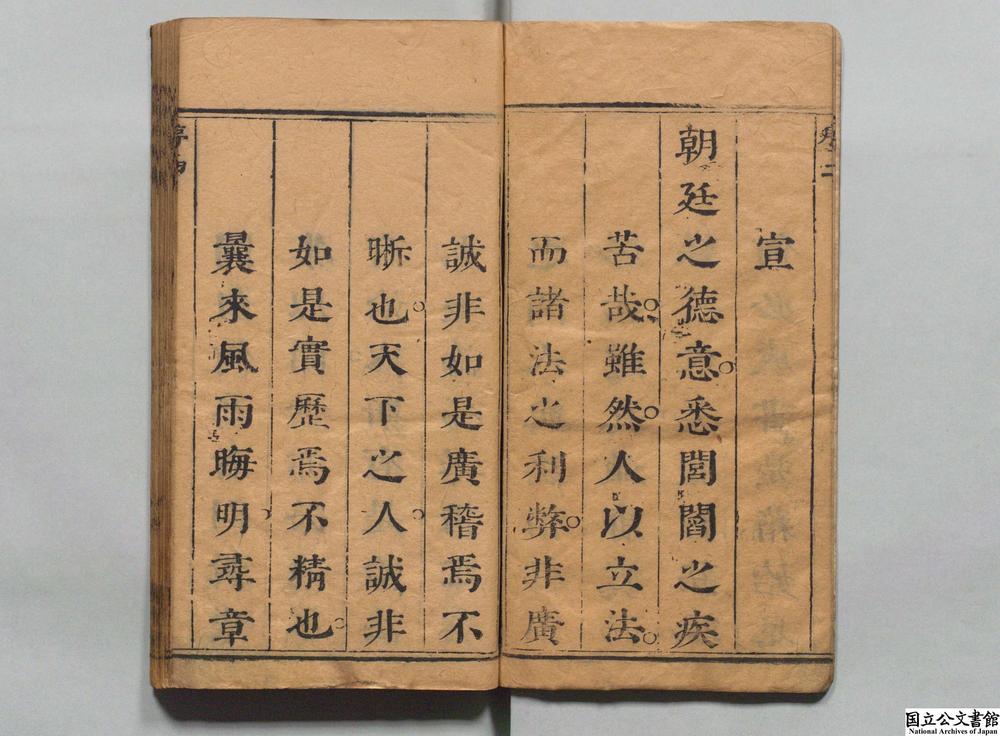 宣
朝廷之德意。悉閭閻之疾
苦哉。雖然。人以立法。
而諸法之利弊。非廣
誠非如是廣稽焉不
晰也。天下之人。誠非
如是實歷焉不精也。
曩來風雨晦明。尋章
序二
国立公文書館
National Archives of Japan